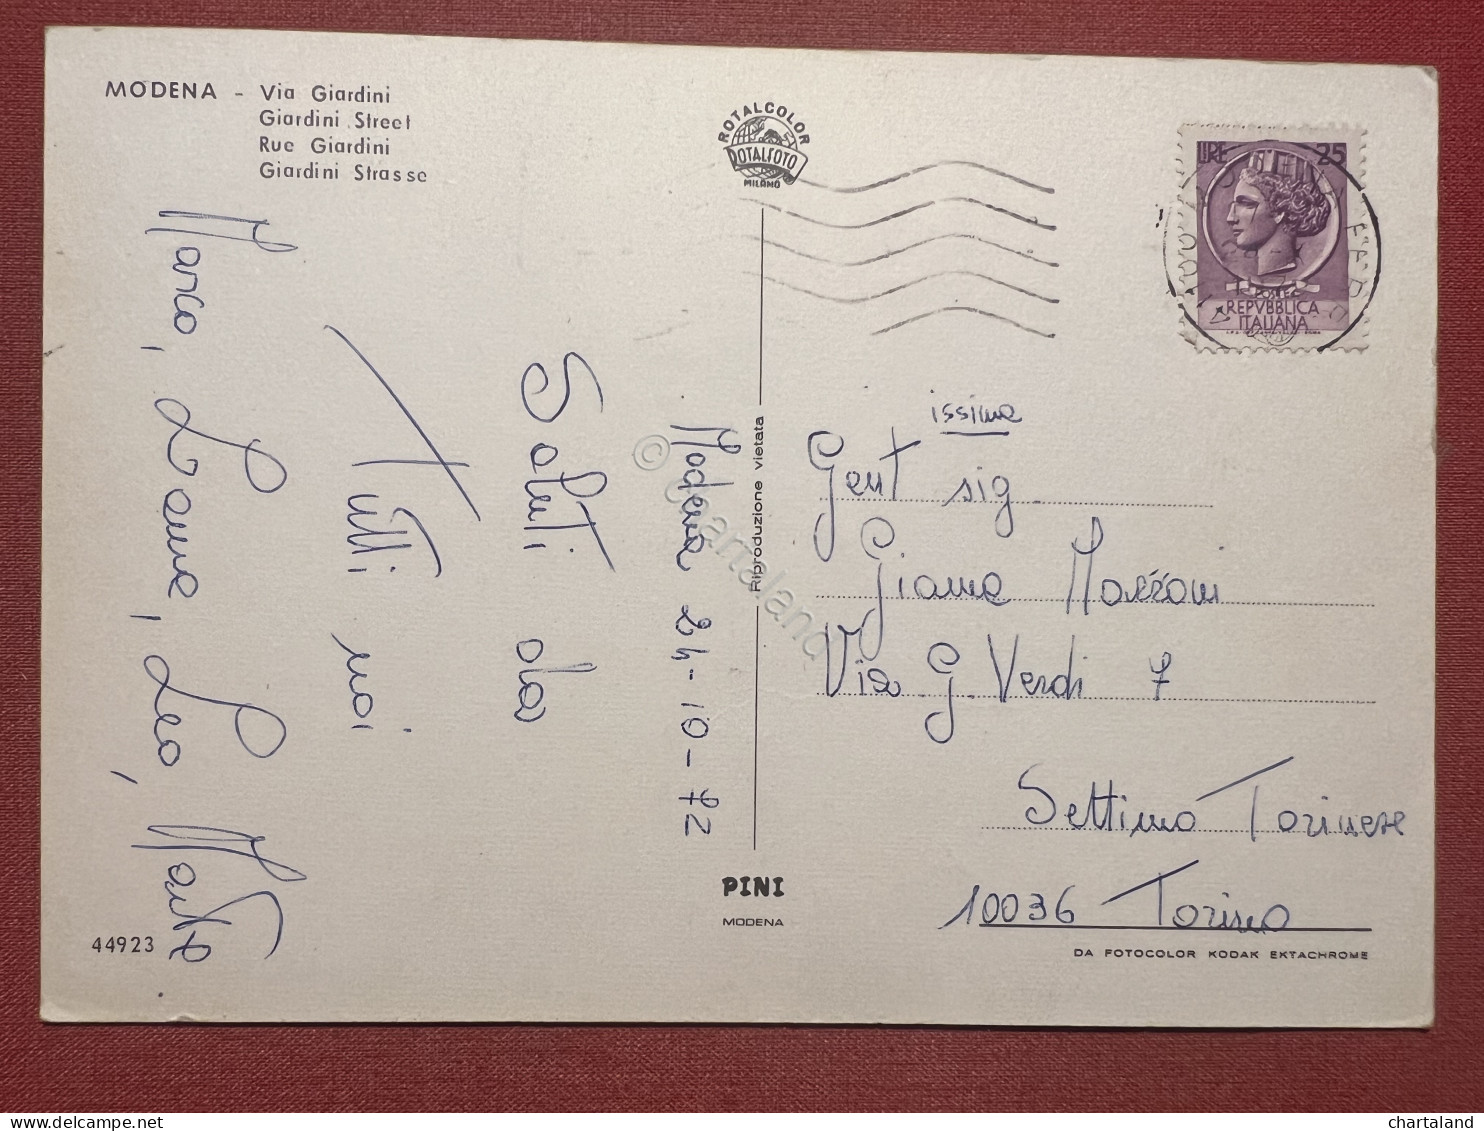 MODENA - Via Giardini
Giardini Street
Rue Giardini
Giardini Strasse
ROTALCOLOR
ROTALFOTO
MILANO
LIRE 25
POSTE
REPVBBLICA
ITALIANA
Modena 24-10-72
Saluti da
Tutti noi
Marco,
Leo,
Riproduzione vietata
© chartaland
Gent issima sig.
Gianna Mazzoni
Via G. Verdi 7
Settimo Torinese
10036 Torino
PINI
MODENA
44923
DA FOTOCOLOR KODAK EKTACHROME
chartaland